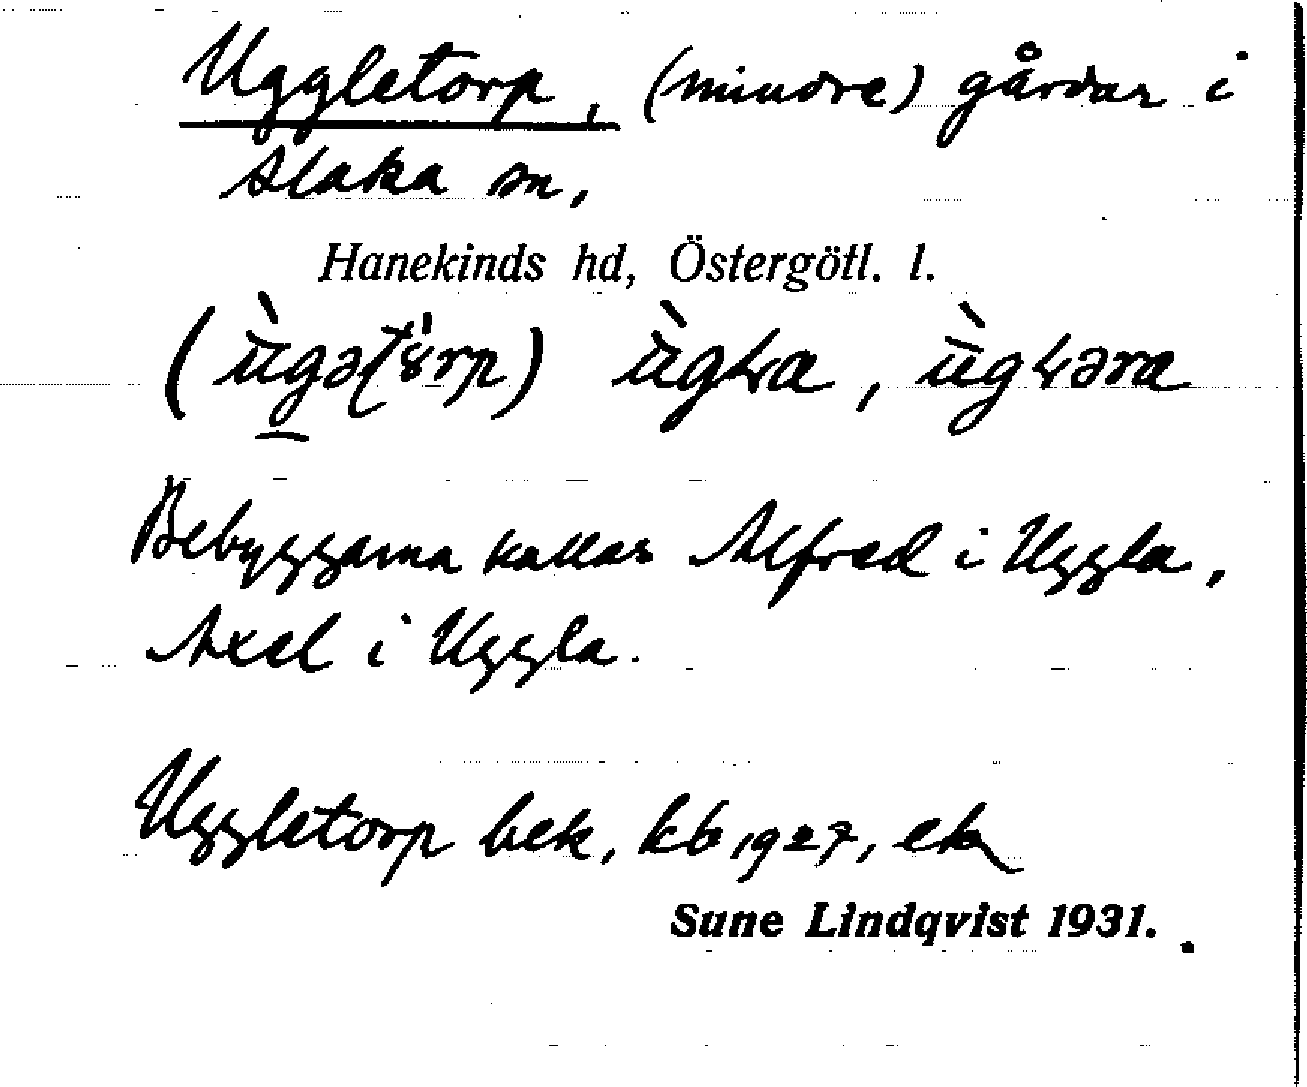 Uggletorp, (mindre) gårdar i
Slaka sn,
Hanekinds hd, Östergötl. l.
Bebyggarna kallas Alfred i Uggla,
Axel i Uggla.
Uggletorp bek, kb 1927, ek
Sune Lindqvist 1931.